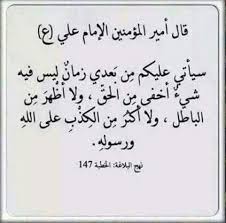 قال أمير المؤمنين الإمام علي (ع)
سيأتي عليكم مِن بَعدي زمانٌ ليس فيه
شيءٌ أخفى مِن الحقّ ، ولا أظهَرَ مِن
الباطل ، ولا أكثرَ مِن الكذِبِ على اللهِ
ورسولهِ.
نهج البلاغة: الخطبة 147